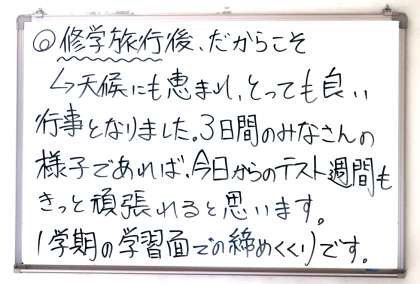 ◎修学旅行後、だからこそ
↳天候にも恵まれ、とっても良い
行事となりました。3日間のみなさんの
様子であれば、今日からのテスト週間も
きっと頑張れると思います。
1学期の学習面での締めくくりです。